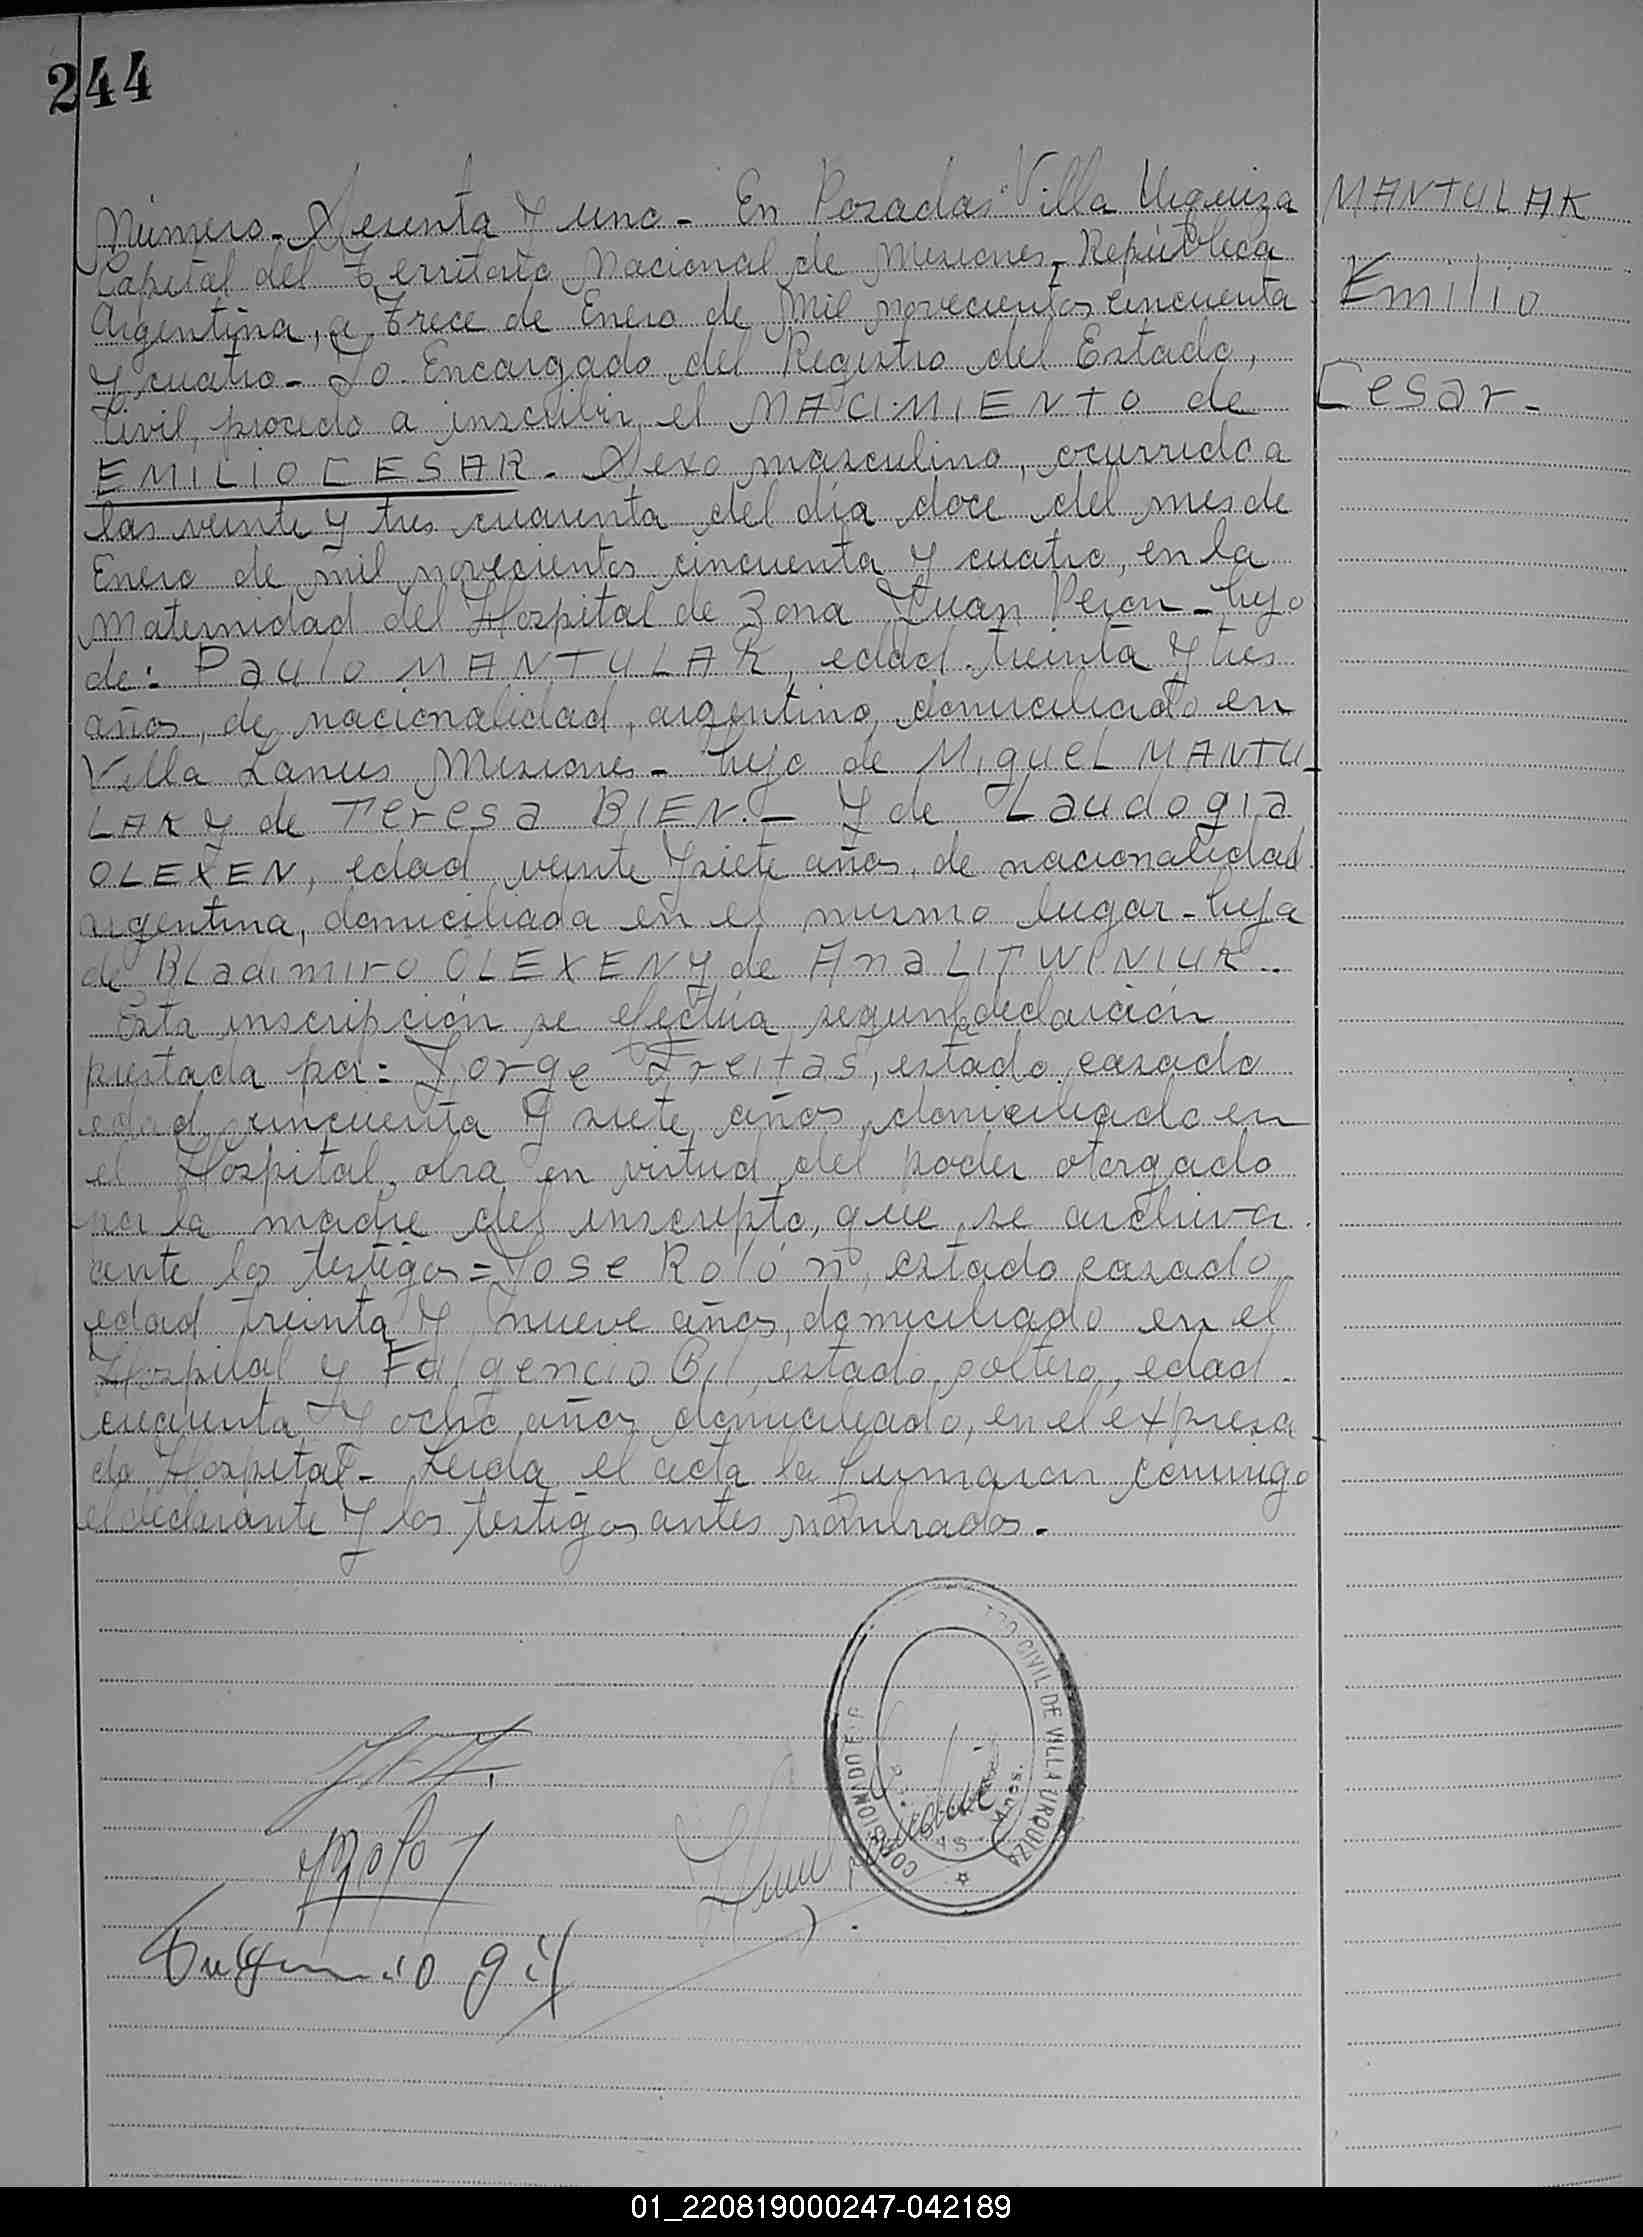 244
Número - Sesenta y uno - En Posadas Villa Urquiza
MANTULAK
Capital del Territorio Nacional de Misiones, República
Argentina, a Trece de Enero de Mil novecientos cincuenta
Emilio
y cuatro - Yo Encargado del Registro del Estado,
Civil, procedo a inscribir el NACIMIENTO de
Cesar -
EMILIO CESAR - Sexo masculino, ocurrido a
las veinte y tres cuarenta del día doce del mes de
Enero de mil novecientos cincuenta y cuatro, en la
Maternidad del Hospital de Zona Juan Peron - hijo
de: Paulo MANTULAK, edad treinta y tres
años, de nacionalidad, argentino, domiciliado en
Villa Lanus Misiones - hijo de Miguel MANTU-
LAK y de Teresa BIEN. - y de Laudogia
OLEXEN, edad veinte y siete años, de nacionalidad
argentina, domiciliada en el mismo lugar - hija
de Bladimiro OLEXEN y de Ana LITWINIUK -
Esta inscripción se efectúa según la declaración
prestada por: Jorge Freitas, estado casado
edad cincuenta y siete años, domiciliado en
el Hospital, obra en virtud del poder otorgado
por la madre del inscripto, que se archiva
ante los testigos = Jose Rolón, estado casado,
edad treinta y nueve años, domiciliado en el
Hospital y Fulgencio Gil, estado soltero, edad
cuarenta y ocho años domiciliado, en el expresa
do Hospital - Leida el acta la firmaron conmigo
el declarante y los testigos antes nombrados. -
CIVIL DE VILLA URQUIZA
gil
01_220819000247-042189